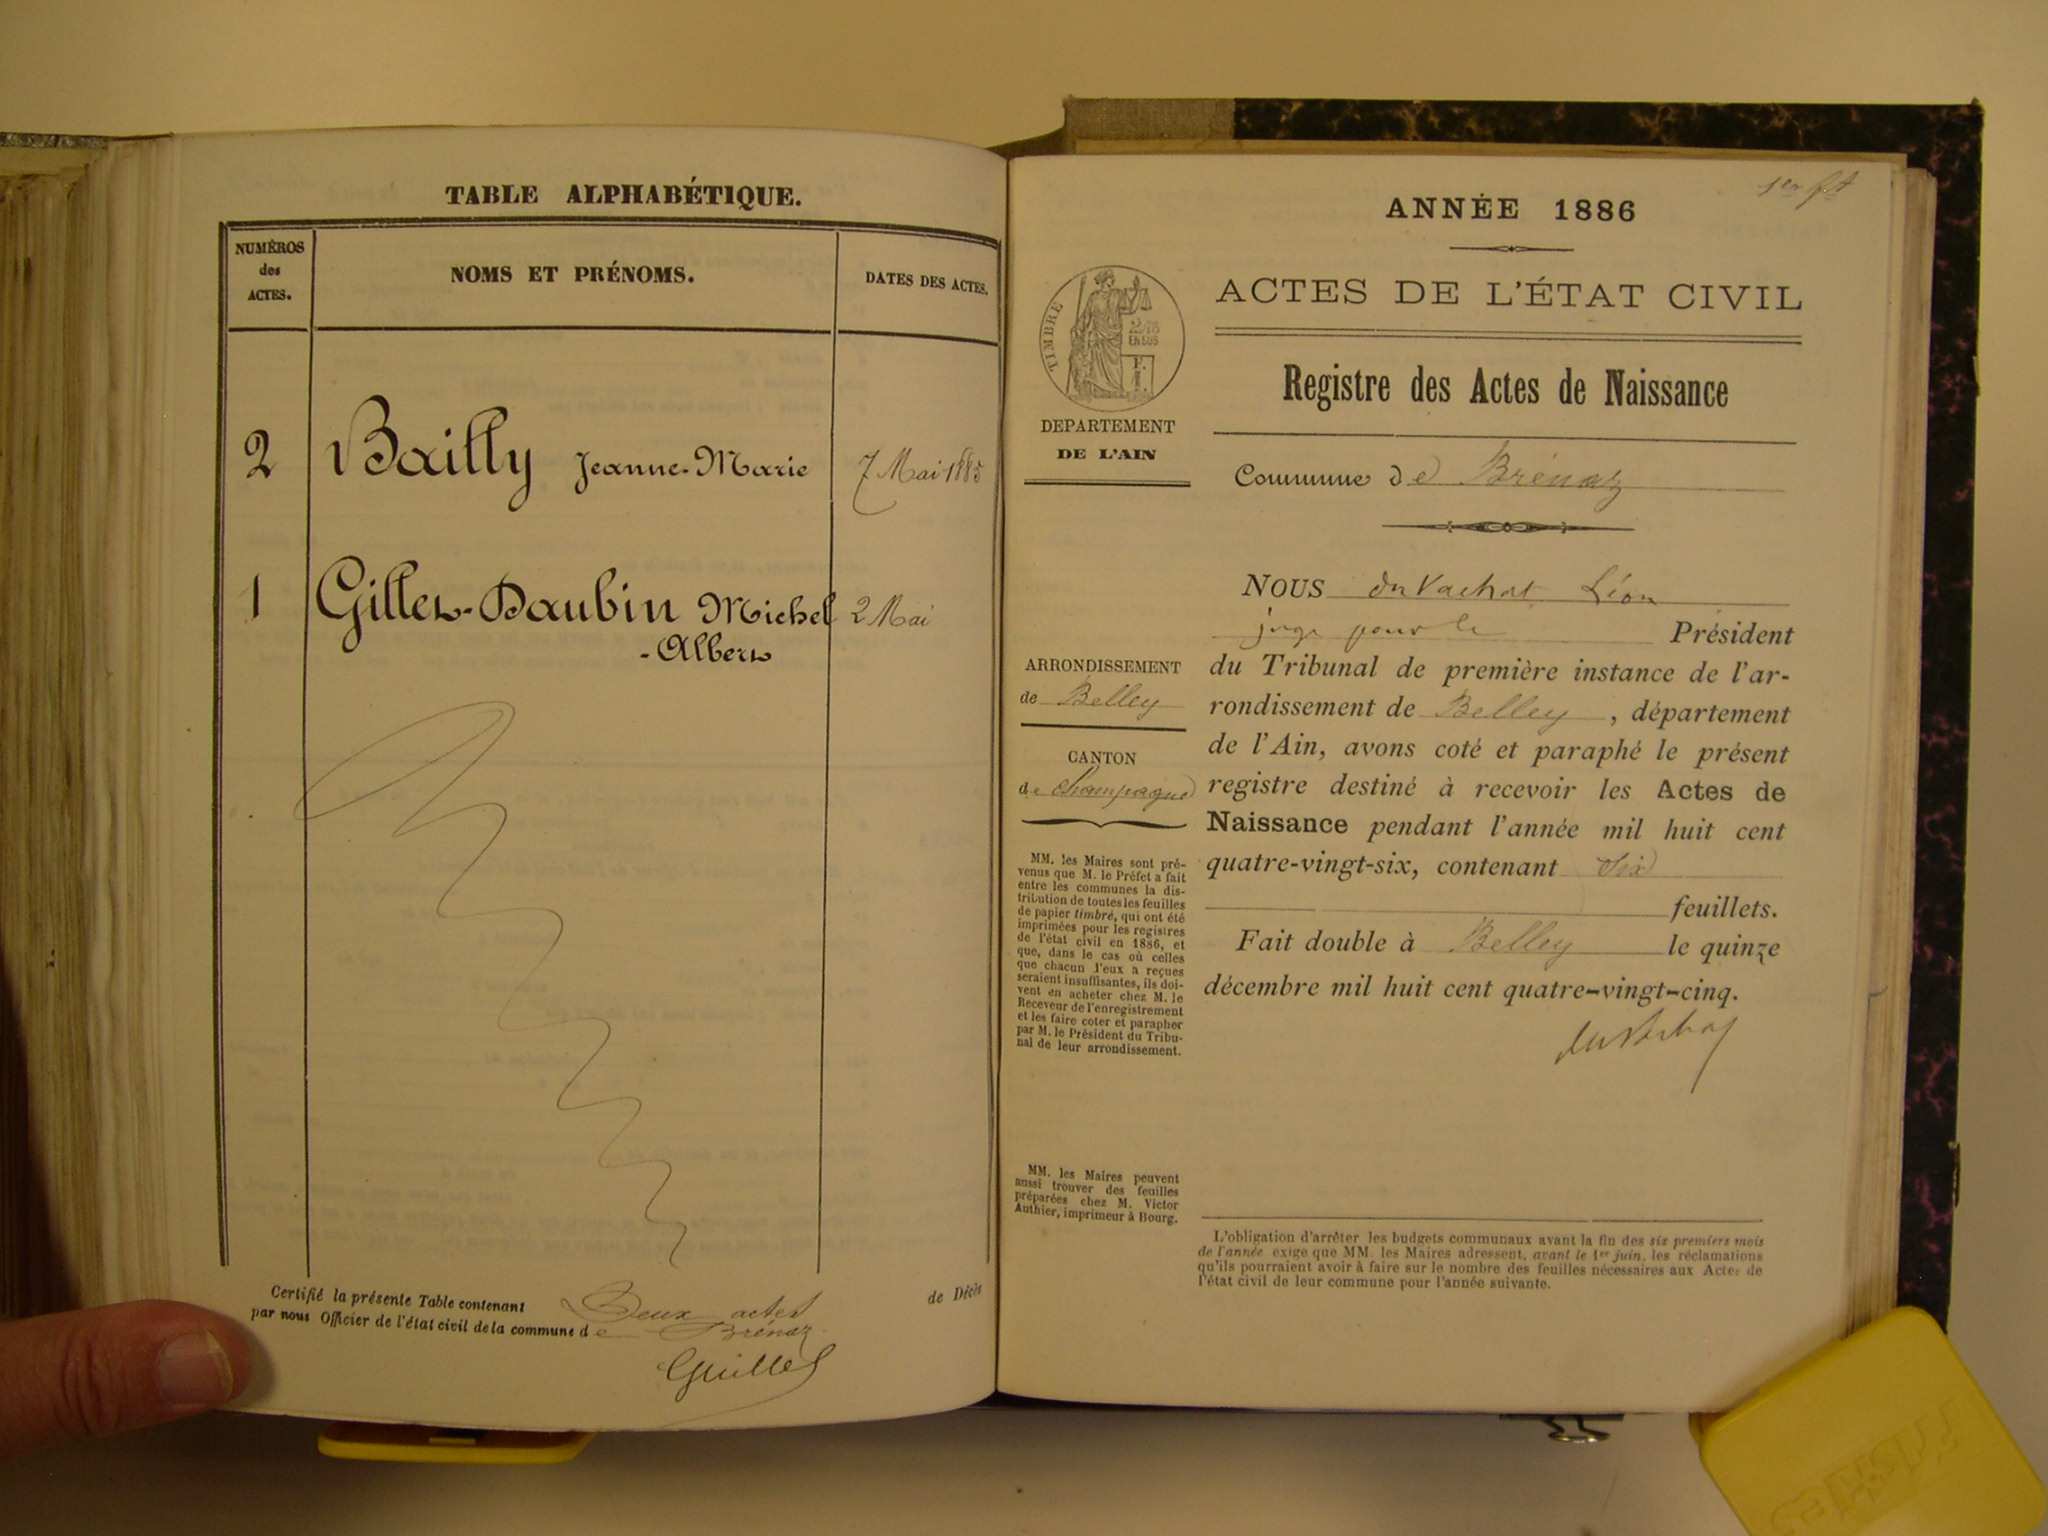 TABLE ALPHABÉTIQUE.
NUMÉROS
des
ACTES.
NOMS ET PRÉNOMS.
DATES DES ACTES.
2 Bailly Jeanne-Marie 7 Mai 1885
1 Gilles-Daubin Michel 2 Mai
-Albert
Certifié la présente Table contenant Deux actes de Décès
par nous Officier de l'état civil de la commune de Brénaz
Guilles
1er ft
ANNÉE 1886
ACTES DE L'ÉTAT CIVIL
Registre des Actes de Naissance
Commune de Brénaz
TIMBRE
2/10
EN SUS
DEPARTEMENT
DE L'AIN
ARRONDISSEMENT
de Belley
CANTON
de Champagne
MM. les Maires sont pré-
venus que M. le Préfet a fait
entre les communes la dis-
tribution de toutes les feuilles
de papier timbré, qui ont été
imprimées pour les registres
de l'état civil en 1886, et
que, dans le cas où celles
que chacun d'eux a reçues
seraient insuffisantes, ils doi-
vent en acheter chez M. le
Receveur de l'enregistrement
et les faire coter et parapher
par M. le Président du Tribu-
nal de leur arrondissement.
MM. les Maires peuvent
aussi trouver des feuilles
préparées chez M. Victor
Authier, imprimeur à Bourg.
NOUS du Vachat Léon
juge pour le Président
du Tribunal de première instance de l'ar-
rondissement de Belley, département
de l'Ain, avons coté et paraphé le présent
registre destiné à recevoir les Actes de
Naissance pendant l'année mil huit cent
quatre-vingt-six, contenant six
feuillets.
Fait double à Belley le quinze
décembre mil huit cent quatre-vingt-cinq.
du Vachat
L'obligation d'arrêter les budgets communaux avant la fin des six premiers mois
de l'année exige que MM. les Maires adressent, avant le 1er juin, les réclamations
qu'ils pourraient avoir à faire sur le nombre des feuilles nécessaires aux Actes de
l'état civil de leur commune pour l'année suivante.